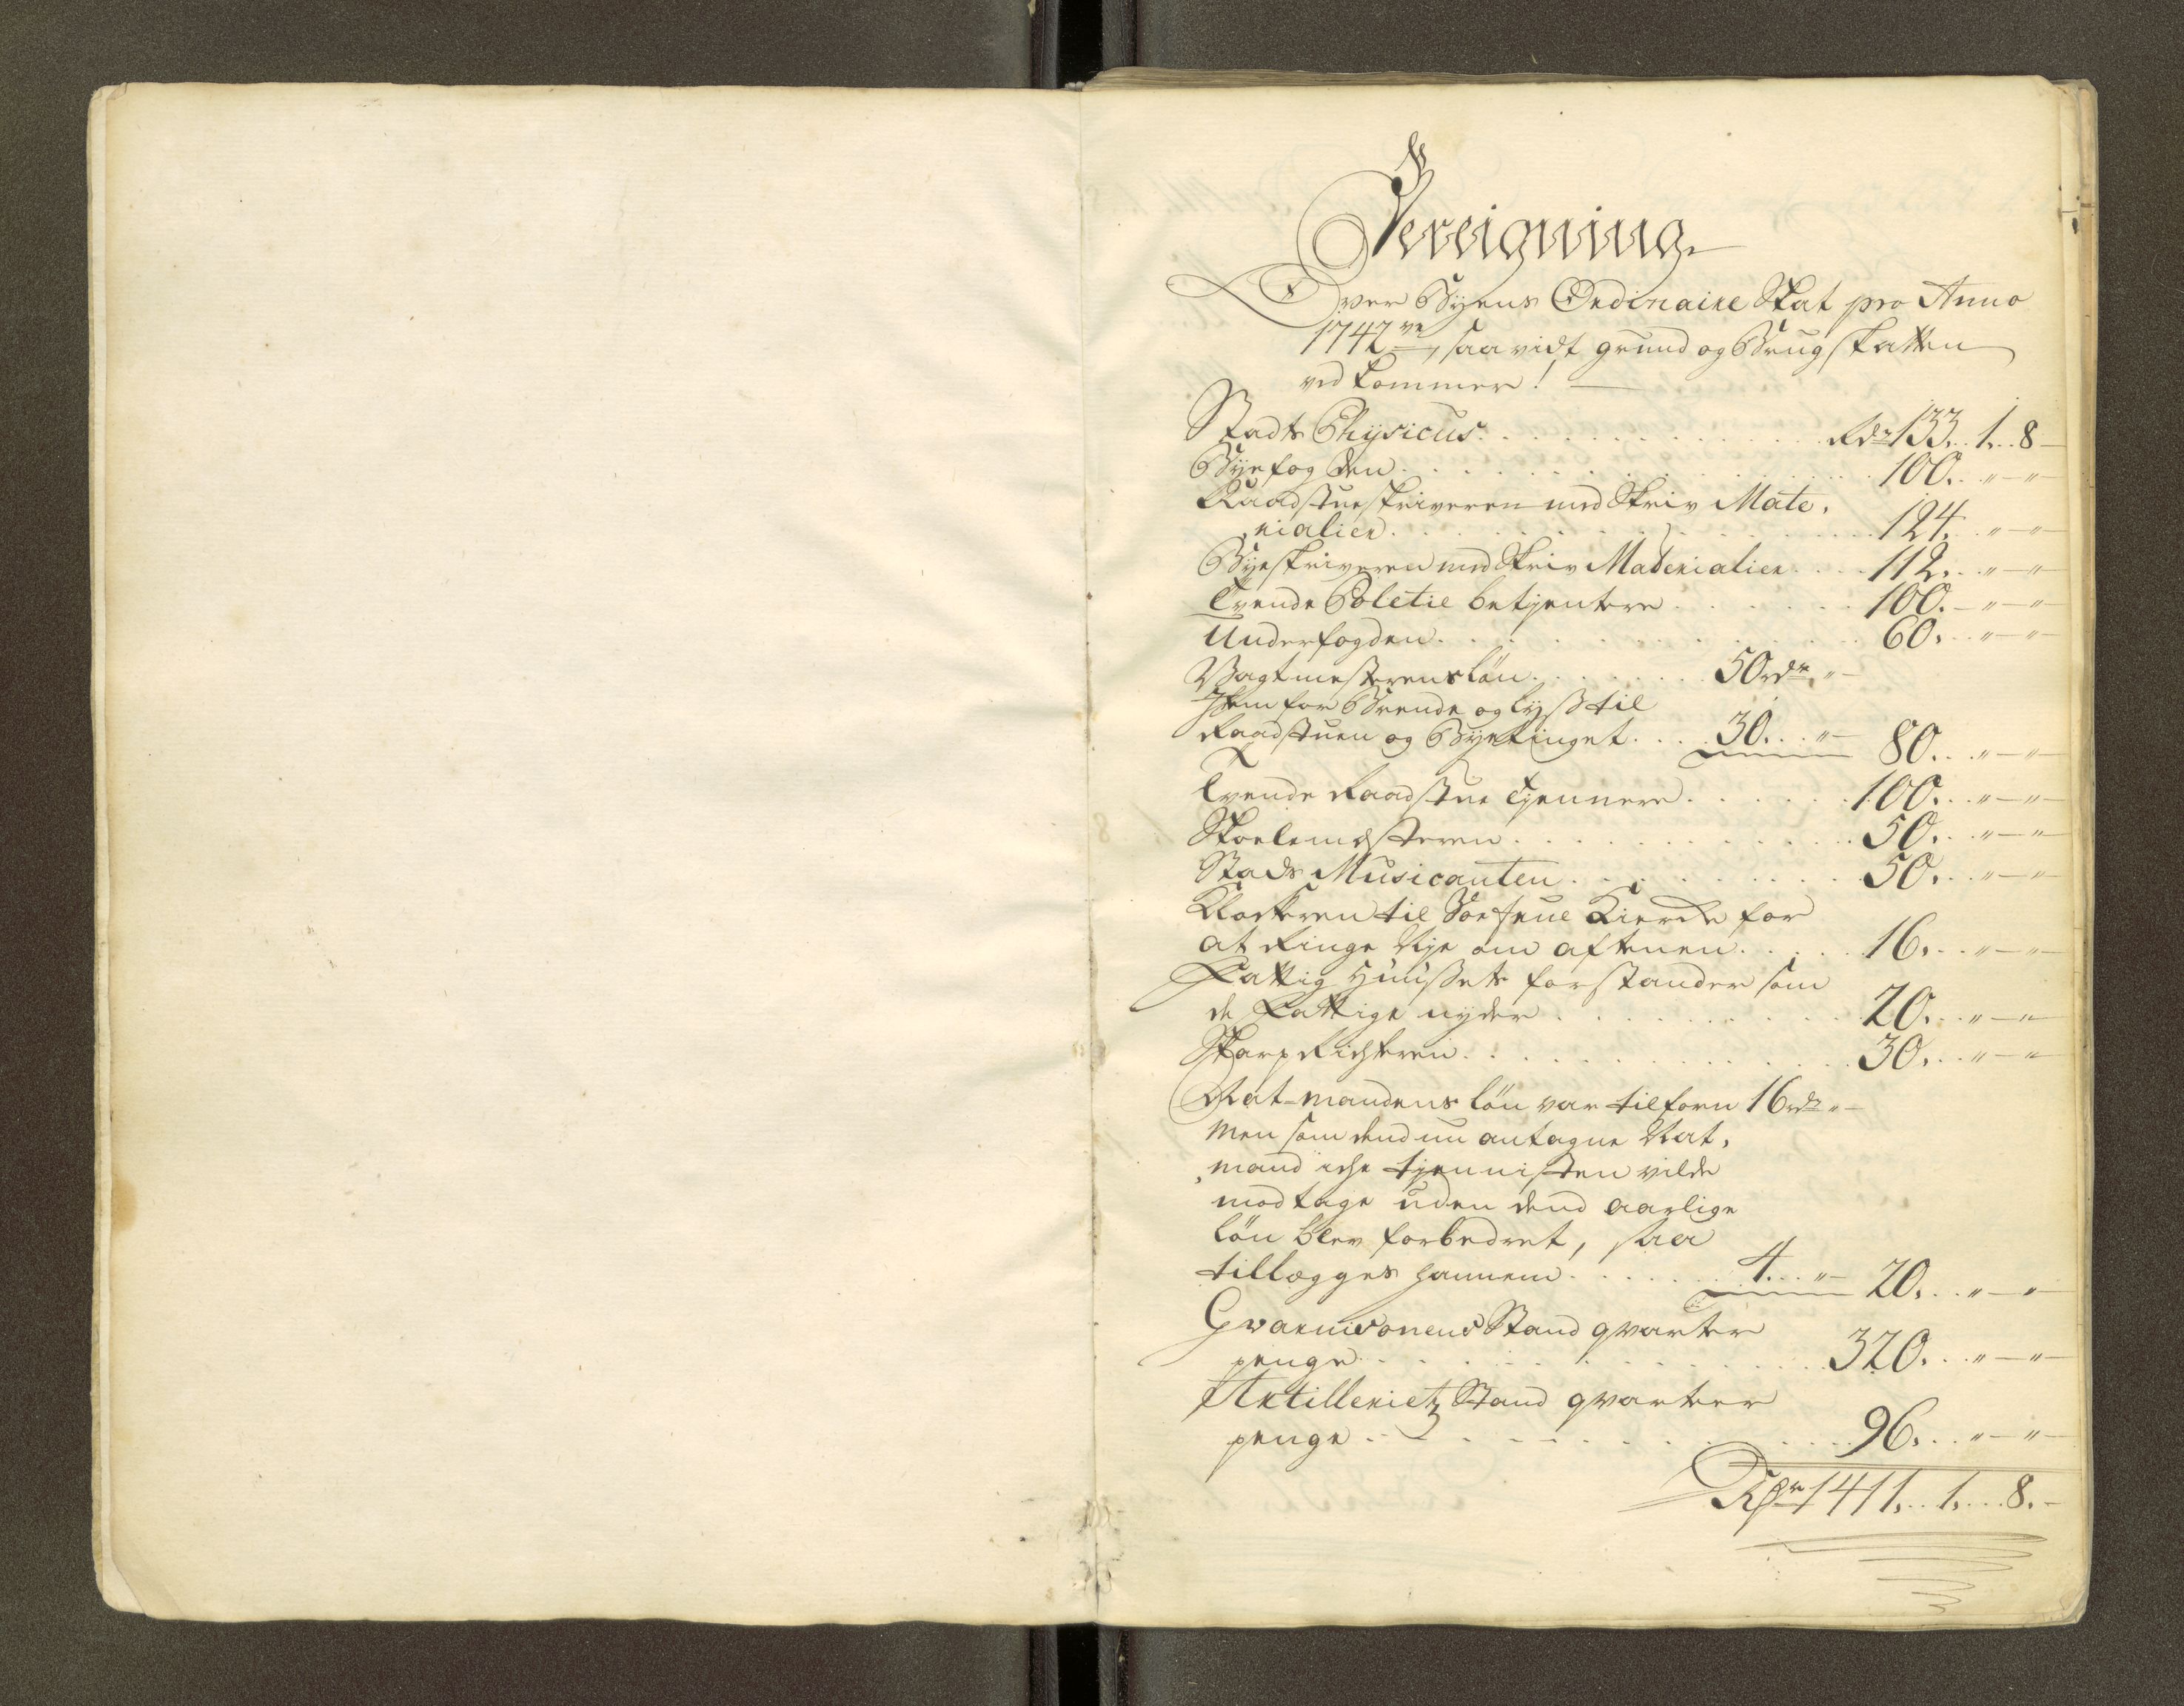 Bereigning
Over Byens Ordinaire Skat pro Anno
1742ve, saavidt grund og Brugskatten
vedkommer!
Stadts Physicus Rdr 133. 1. 8
Byefogden 100. " "
Raadstueskriveren med Skriv Mate,
,rialier 124. " "
Byeskriveren med Skriv Materialier 112. " "
Tvende Poletie betjentere 100. " "
Underfogden 60. " "
Vagtmesterens løn 50 rdr "
Item for Brende og lyss til
Raadstuen og Byetinget 30. " 80. " "
Tvende Raadstue Tjennere 100. " "
Skolemesteren 50. " "
Stads Musicanten 50. " "
Klokkeren til Vor frue Kierke for
at Ringe Vije om aftenen 16. " "
Fattig Huussets forstander som
de Fattige nyder 20. " "
Skarp Richteren 30. " "
Nat-mandens løn var tilforn 16 rdr "
Men som dend nu antagne Nat,
,mand iche tjennisten vilde
modtage uden dend aarlige
løn blev forbedret, saa
tillegges hannem 4. " 20. " "
Gvarnisonens Stand qvarter
penge 320. " "
Artilleriets Stand qvarter
penge 96. " "
Rdr 1411. 1. 8.